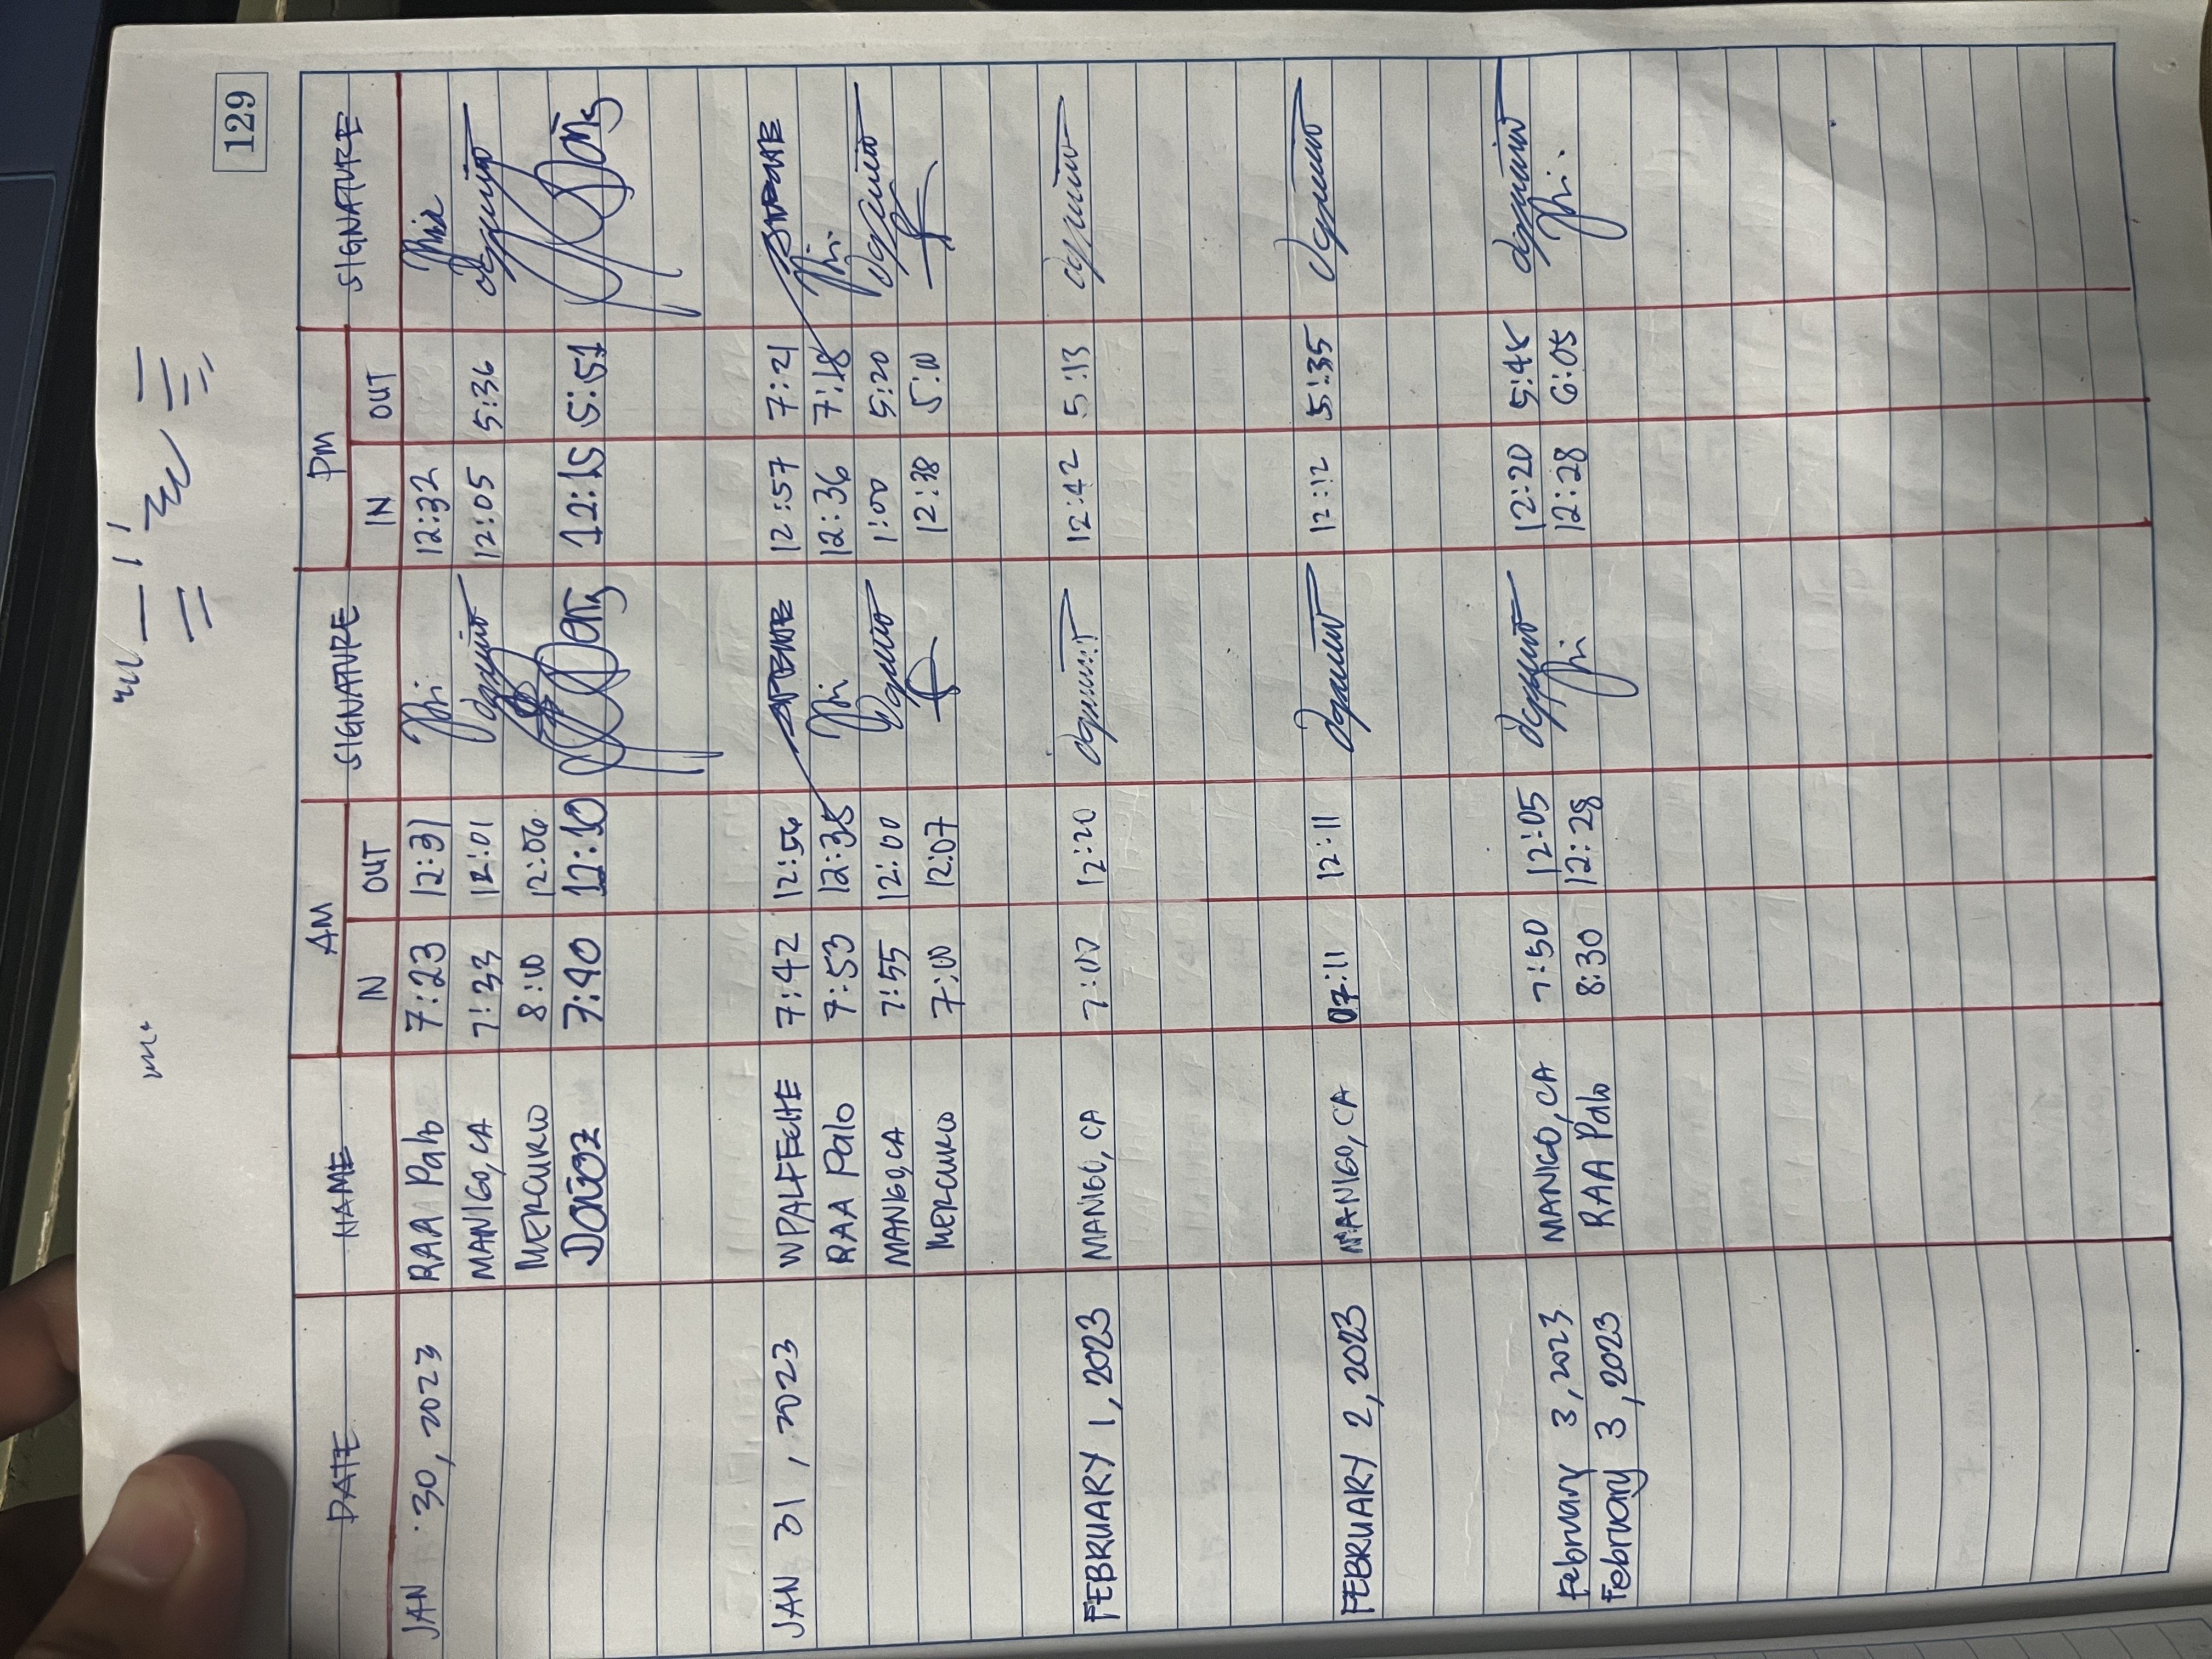 129
DATE NAME AM SIGNATURE PM SIGNATURE
IN OUT IN OUT
JAN 30, 2023 RAA Palo 7:23 12:31 12:32
MANIGO, CA 7:33 12:01 12:05 5:36
MERCURIO 8:10 12:06
7:40 12:10 12:15 5:51
JAN 31, 2023 WPALFECHE 7:42 12:56 12:57 7:21
RAA Palo 7:53 12:35 12:36 7:18
MANIGO, CA 7:55 12:00 1:00 5:20
MERCURIO 7:00 12:07 12:38 5:10
FEBRUARY 1, 2023 MANIGO, CA 7:00 12:20 12:42 5:13
FEBRUARY 2, 2023 MANIGO, CA 07:11 12:11 12:12 5:35
February 3, 2023 MANIGO, CA 7:50 12:05 12:20 5:45
February 3, 2023 RAA Palo 8:30 12:28 12:28 6:05